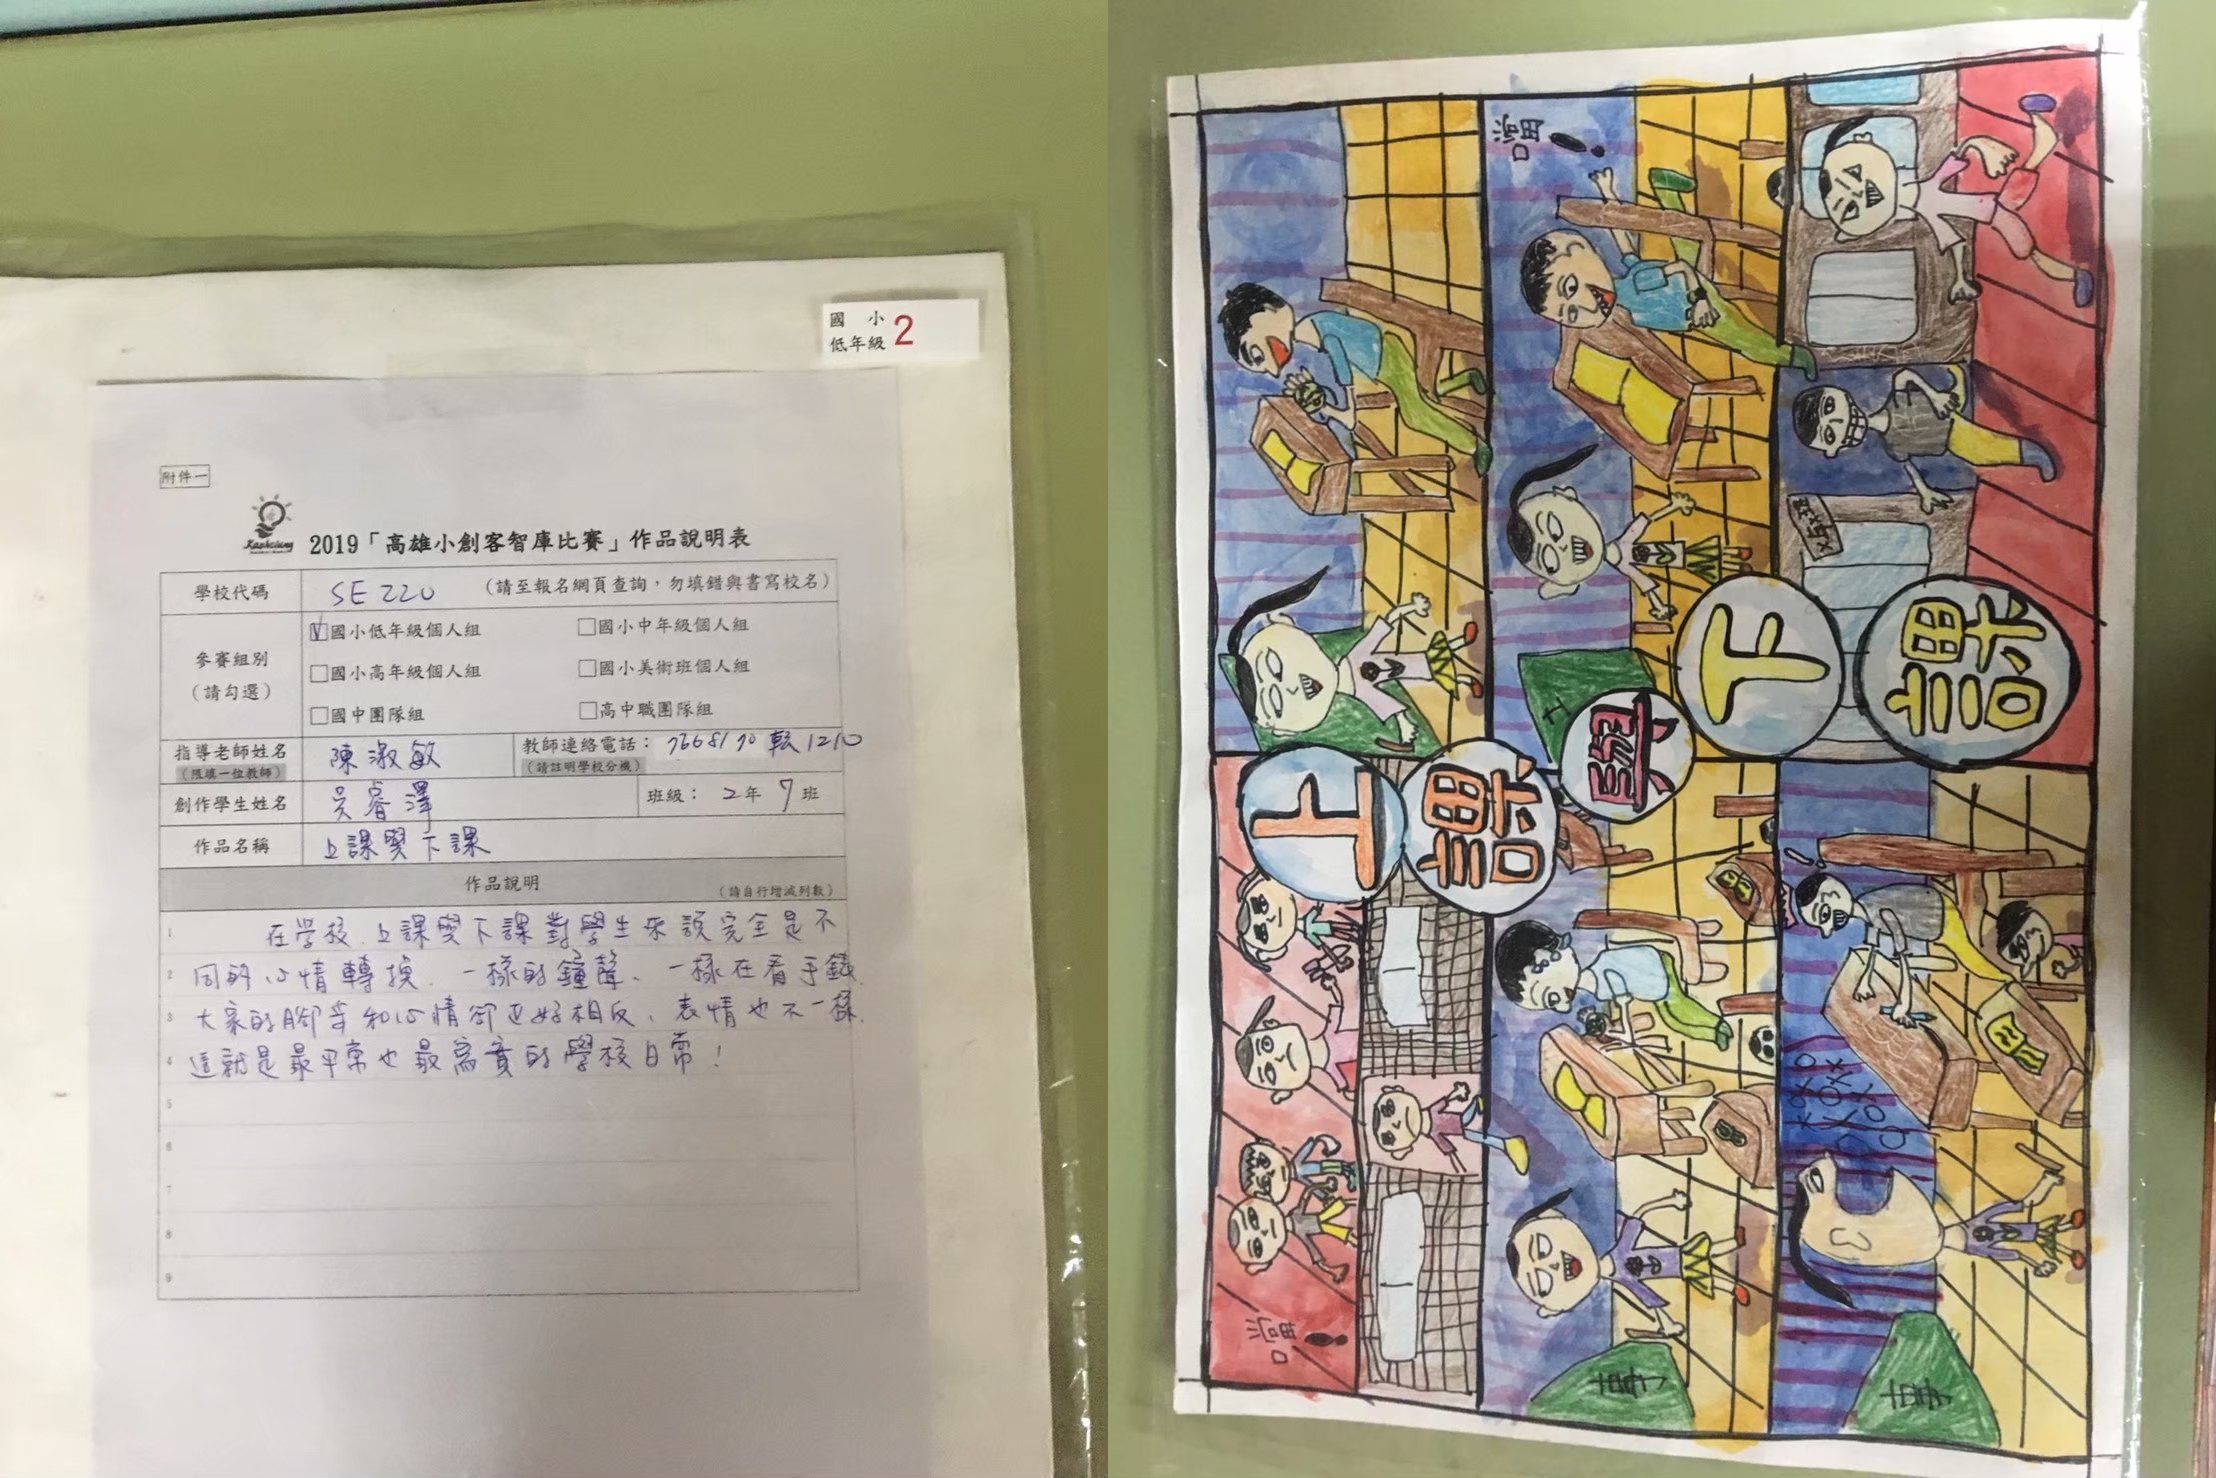 國小
低年級 2
附件一
Kaohsiung
2019「高雄小創客智庫比賽」作品說明表
學校代碼 SE220 （請至報名網頁查詢，勿填錯與書寫校名）
參賽組別
（請勾選）
☑國小低年級個人組 □國小中年級個人組
□國小高年級個人組 □國小美術班個人組
□國中團隊組 □高中職團隊組
指導老師姓名 陳淑敏 教師連絡電話： 轉1210
（限填一位教師） （請註明學校分機）
創作學生姓名 吳睿澤 班級：2年7班
作品名稱 上課與下課
作品說明 （請自行增減列數）
1 在学校、上課與下課對學生來說完全是不
2 同的心情轉換、一樣的鐘聲、一樣在看手錶、
3 大家的腳步和心情卻正好相反、表情也不一樣、
4 這就是最平常也最寫實的學校日常！
5
6
7
8
9
上課與下課